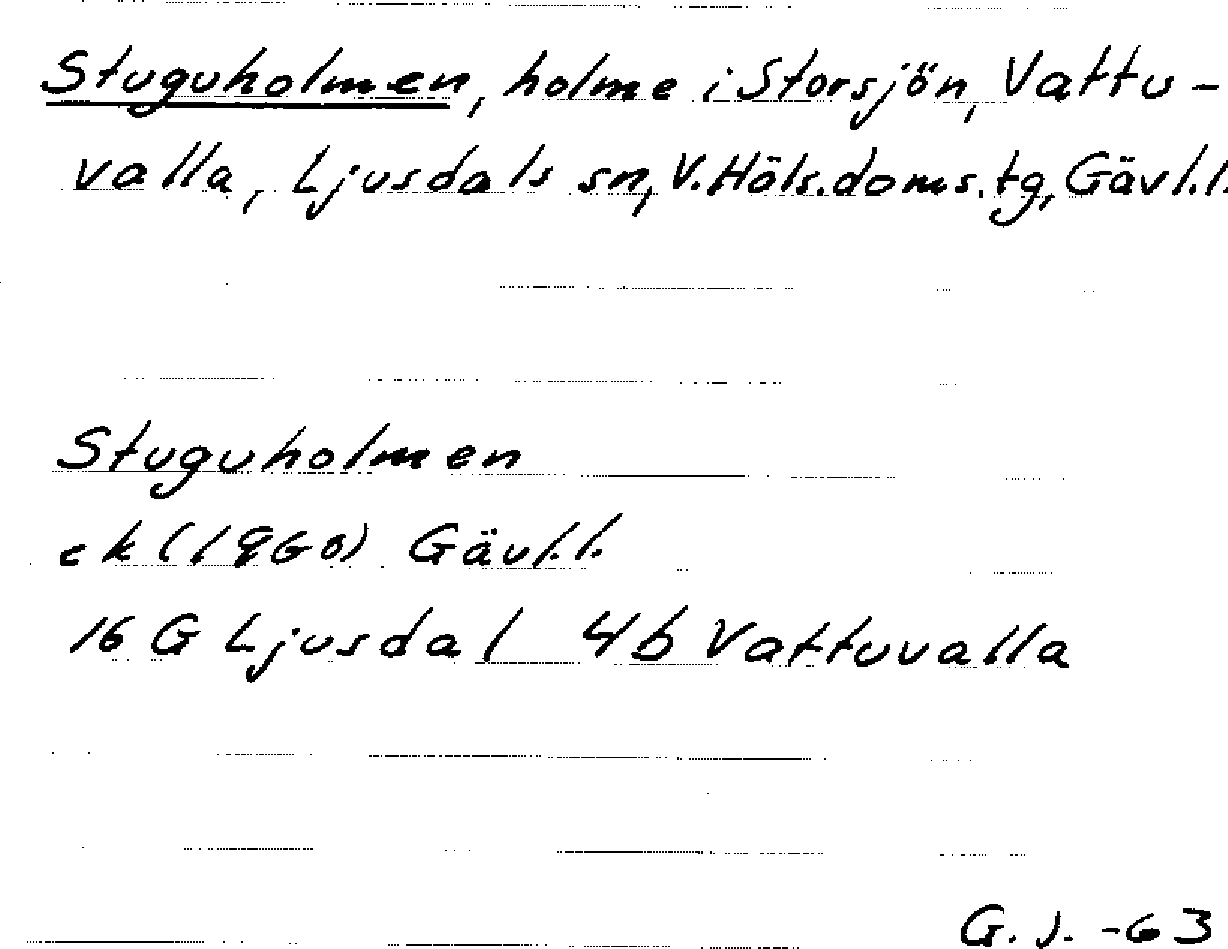 Stuguholmen, holme i Storsjön, Vattu-
valla, Ljusdals sn, V.Häls.doms.tg, Gävl.l.
Stuguholmen
ek (1960) Gävl.l.
16 G Ljusdal 4b Vattuvalla
G.J. -63